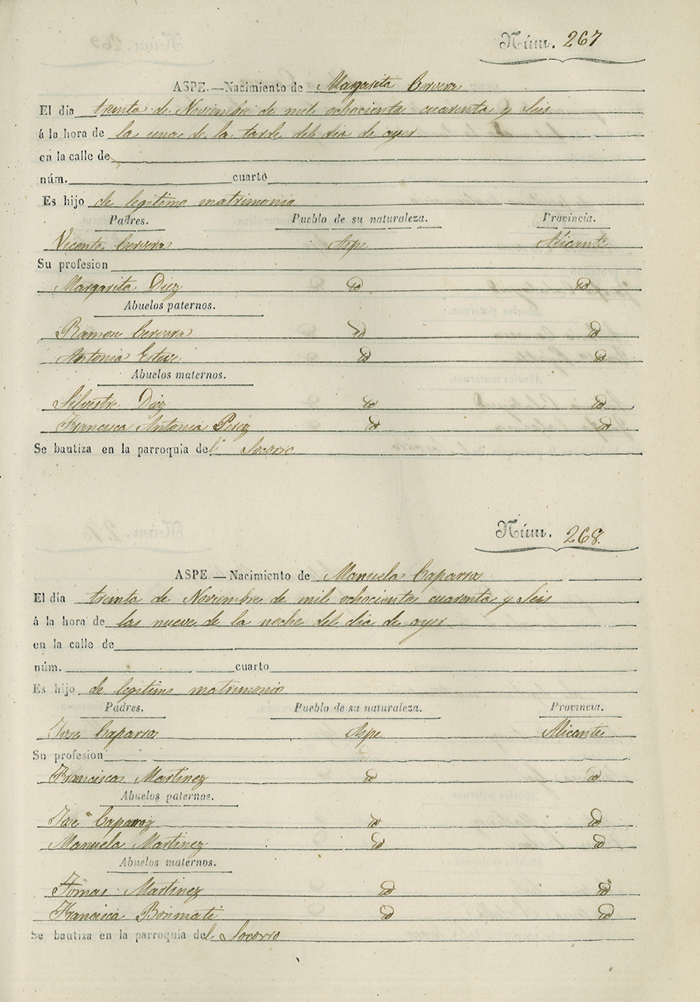 Núm. 267
ASPE.—Nacimiento de Margarita Cervera
El dia treinta de Noviembre de mil ochocientos cuarenta y seis
á la hora de la una de la tarde del dia de ayer
en la calle de
núm. cuarto
Es hijo de legitimo matrimonio
Padres. Pueblo de su naturaleza. Provincia.
Vicente Cervera Aspe Alicante
Su profesion
Margarita Diez id id
Abuelos paternos.
Ramon Cervera id id
Antonia Esteve id id
Abuelos maternos.
Silvestre Diez id id
Francisca Antonia Perez id id
Se bautiza en la parroquia del Socorro
Núm. 268.
ASPE.—Nacimiento de Manuela Caparra
El dia treinta de Noviembre de mil ochocientos cuarenta y seis
á la hora de las nueve de la noche del dia de ayer
en la calle de
núm. cuarto
Es hijo de legitimo matrimonio
Padres. Pueblo de su naturaleza. Provincia.
Jose Caparra Aspe Alicante
Su profesion
Francisca Martinez id id
Abuelos paternos.
Jose id id
Manuela Martinez id id
Abuelos maternos.
Tomas Martinez id id
Francisca Bonmati id id
Se bautiza en la parroquia del Socorro